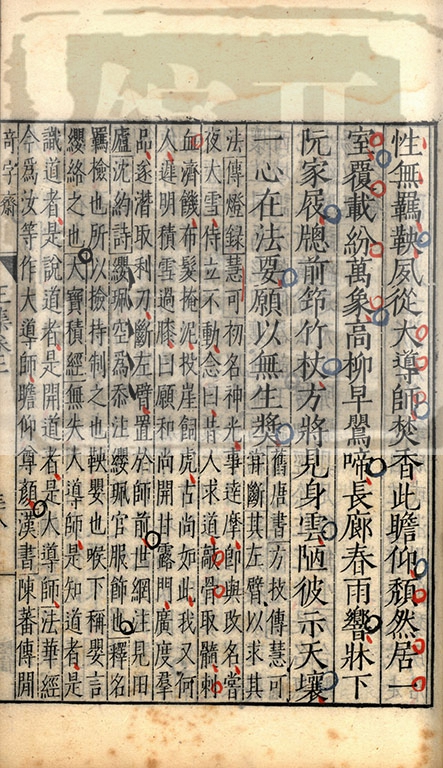 性無羈鞅夙從大導師焚香此瞻仰頹然居一
室覆載紛萬象高柳早鶯啼長廊春雨響牀下
阮家屐牕前筇竹杖方將見身雲陋彼示天壤
一心在法要願以無生奬
舊唐書方技傳慧可
嘗斷其左臂以求其
法傳燈録慧可初名神光事達摩師與改名嘗
夜大雪侍立不動念曰昔人求道敲骨取髓刺
血濟饑布髮掩泥投崖飼虎古尚如此我又何
人遲明積雪過膝曰願和尚開甘露門廣度羣
品逐潛取利刀斷左臂置於師前世網注見田
廬沈約詩纓珮空爲忝注纓珮官服飾也釋名
羈檢也所以檢持制之也鞅嬰也喉下稱嬰言
纓絡之也大寶積經無失大導師是知道者是
識道者是說道者是開道者是大導師法華經
今爲汝等作大導師瞻仰尊顔漢書陳蕃傳閒
奇字齋